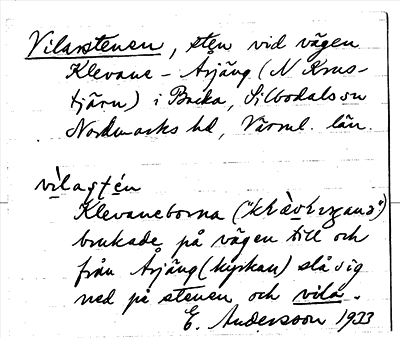 Vilarstenen, sten vid vägen
Klevane - Årjäng (N Krus-
tjärn) i Backa, Silbodals sn
Nordmarks hd, Värml. län.
vìlastén
Klevaneborna
brukade på vägen till och
från Årjäng (kyrkan) slå sig
ned på stenen och vila.
E. Andersson 1933